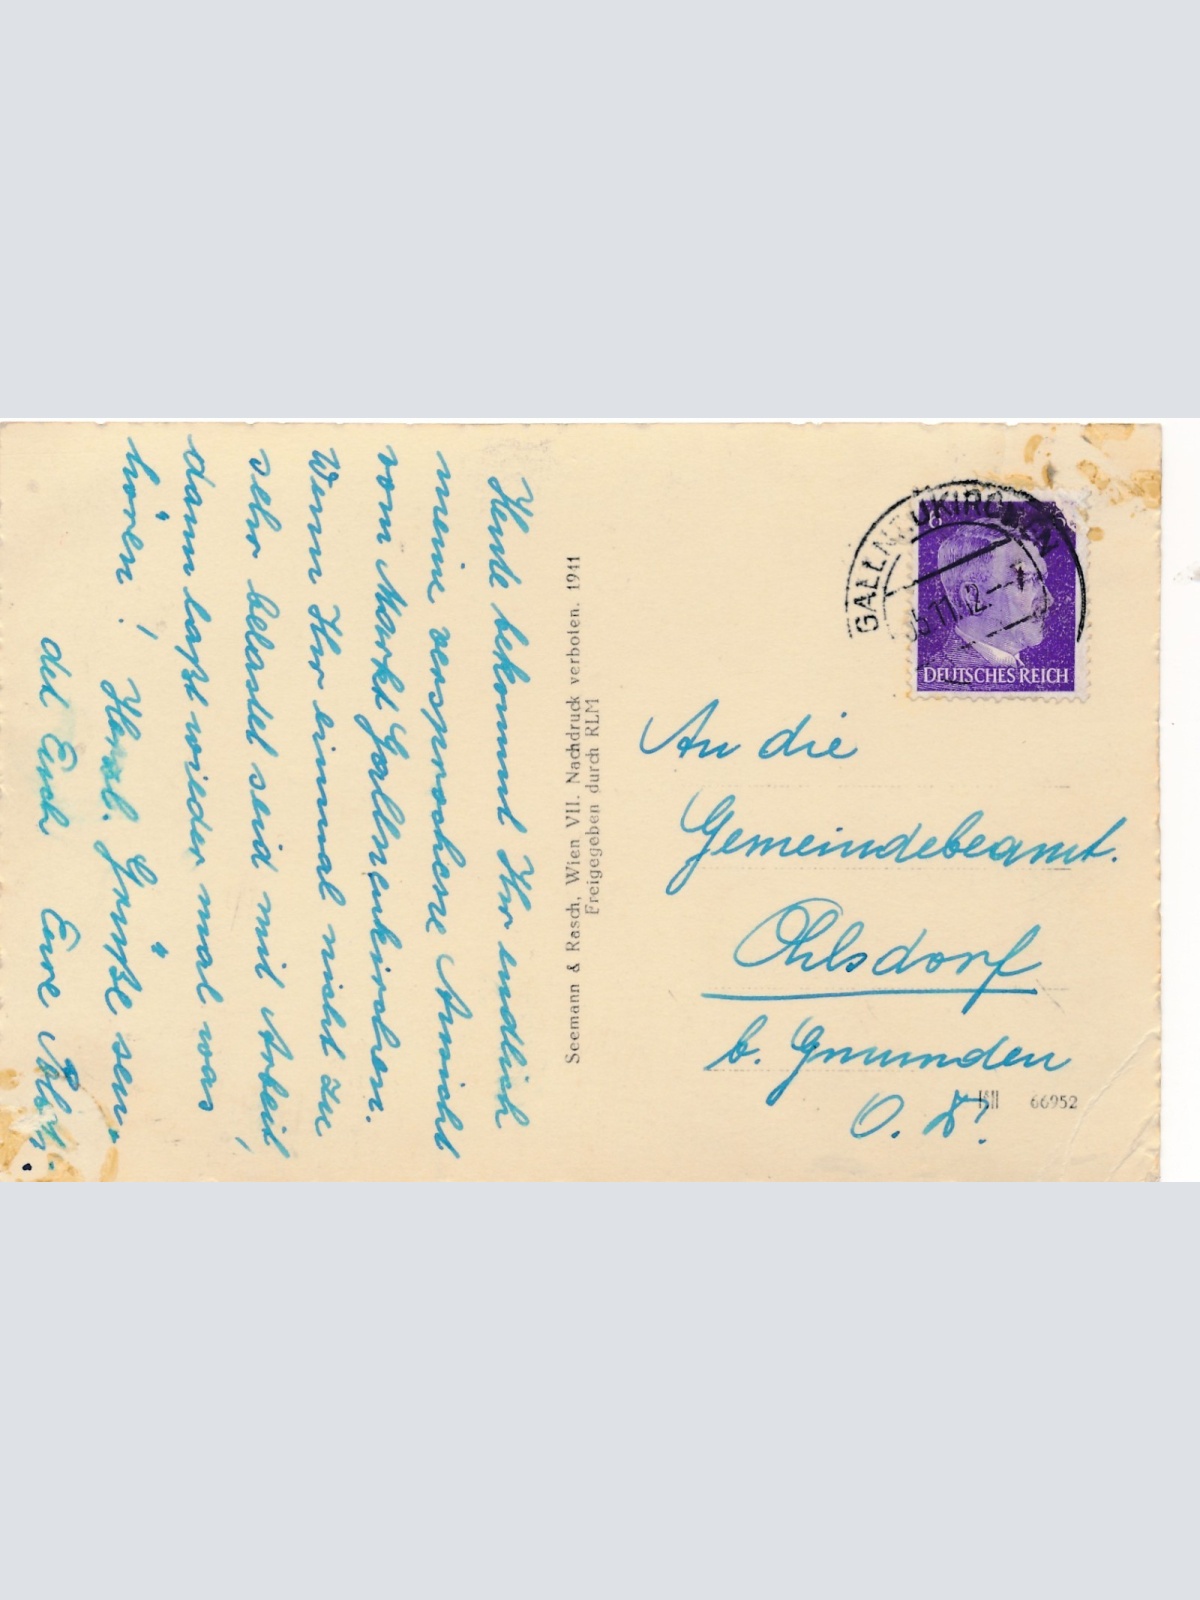 Heute bekommt Ihr endlich
meine versprochene Ansicht
vom Markt Gallneukirchen.
Wenn Ihr einmal nicht zu
sehr belastet seid mit Arbeit,
dann laßt wieder mal was
hören! Herzl. Grüße sen-
det Euch Eure
Seemann & Rasch, Wien VII. Nachdruck verboten. 1941
Freigegeben durch RLM
GALLNEUKIRCHEN
6
DEUTSCHES REICH
An die
Gemeindebeamt.
Ohlsdorf
b. Gmunden
O. D!
66952